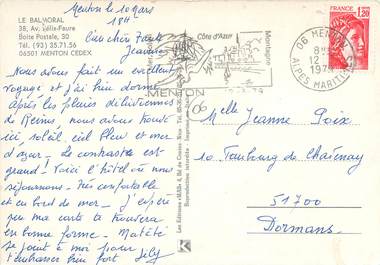 LE BALMORAL
38, Av. Félix-Faure
Boite Postale, 50
Tél. (93) 35.71.56
06501 MENTON CEDEX
Menton le 10 mars
18H
Bien chère Jeanne
Nous avons fait un excellent
voyage et j'ai bien dormi
Après les pluies diluviennes
de Reims, nous avons trouvé
ici soleil, ciel bleu et mer
d'azur. Le contraste est
grand! Voici l'hôtel où nous
séjournons. Très confortable
et en bord de mer. J'espère
que ma carte te trouvera
en bonne forme.
se joint à moi pour
t'embrasser bien fort Lily
Côte d'Azur
Montagne
MENTON
06 MENTON
12
ALPES MARITIMES
FRANCE
1,20
06
Melle Jeanne Poix
10 Faubourg de Chavenay
51700
Dormans
Les Editions "MAR"
Nice